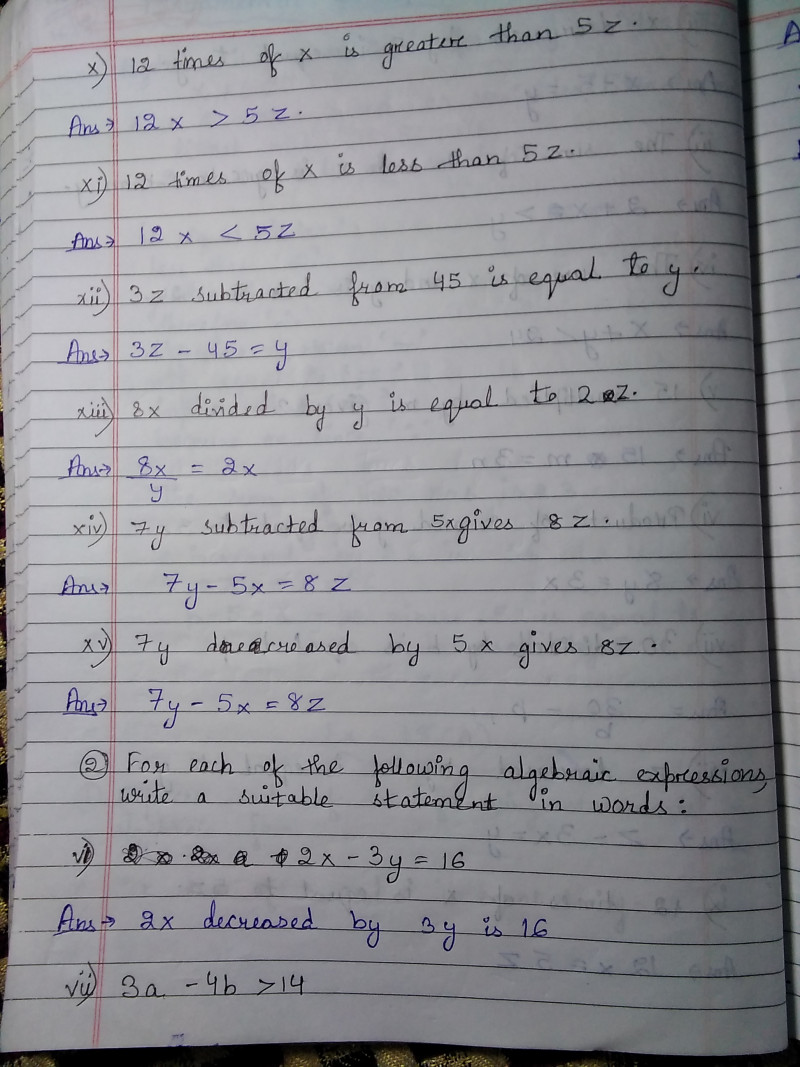 x) 12 times of x is greatere than 5 z.
Ans→ 12 x > 5 z.
xi) 12 times of x is less than 5 z.
Ans→ 12 x < 5z
xii) 3z subtracted from 45 is equal to y.
Ans→ 3z - 45 = y
xiii) 8x divided by y is equal to 2 z.
Ans→ 8x/y = 2x
xiv) 7y subtracted from 5x gives 8 z.
Ans→ 7y - 5x = 8 z
xv) 7y decreased by 5 x gives 8z.
Ans→ 7y - 5x = 8z
② For each of the following algebraic expressions,
write a suitable statement in words:
vi) 2x - 3y = 16
Ans→ 2x decreased by 3y is 16
vii) 3a - 4b > 14